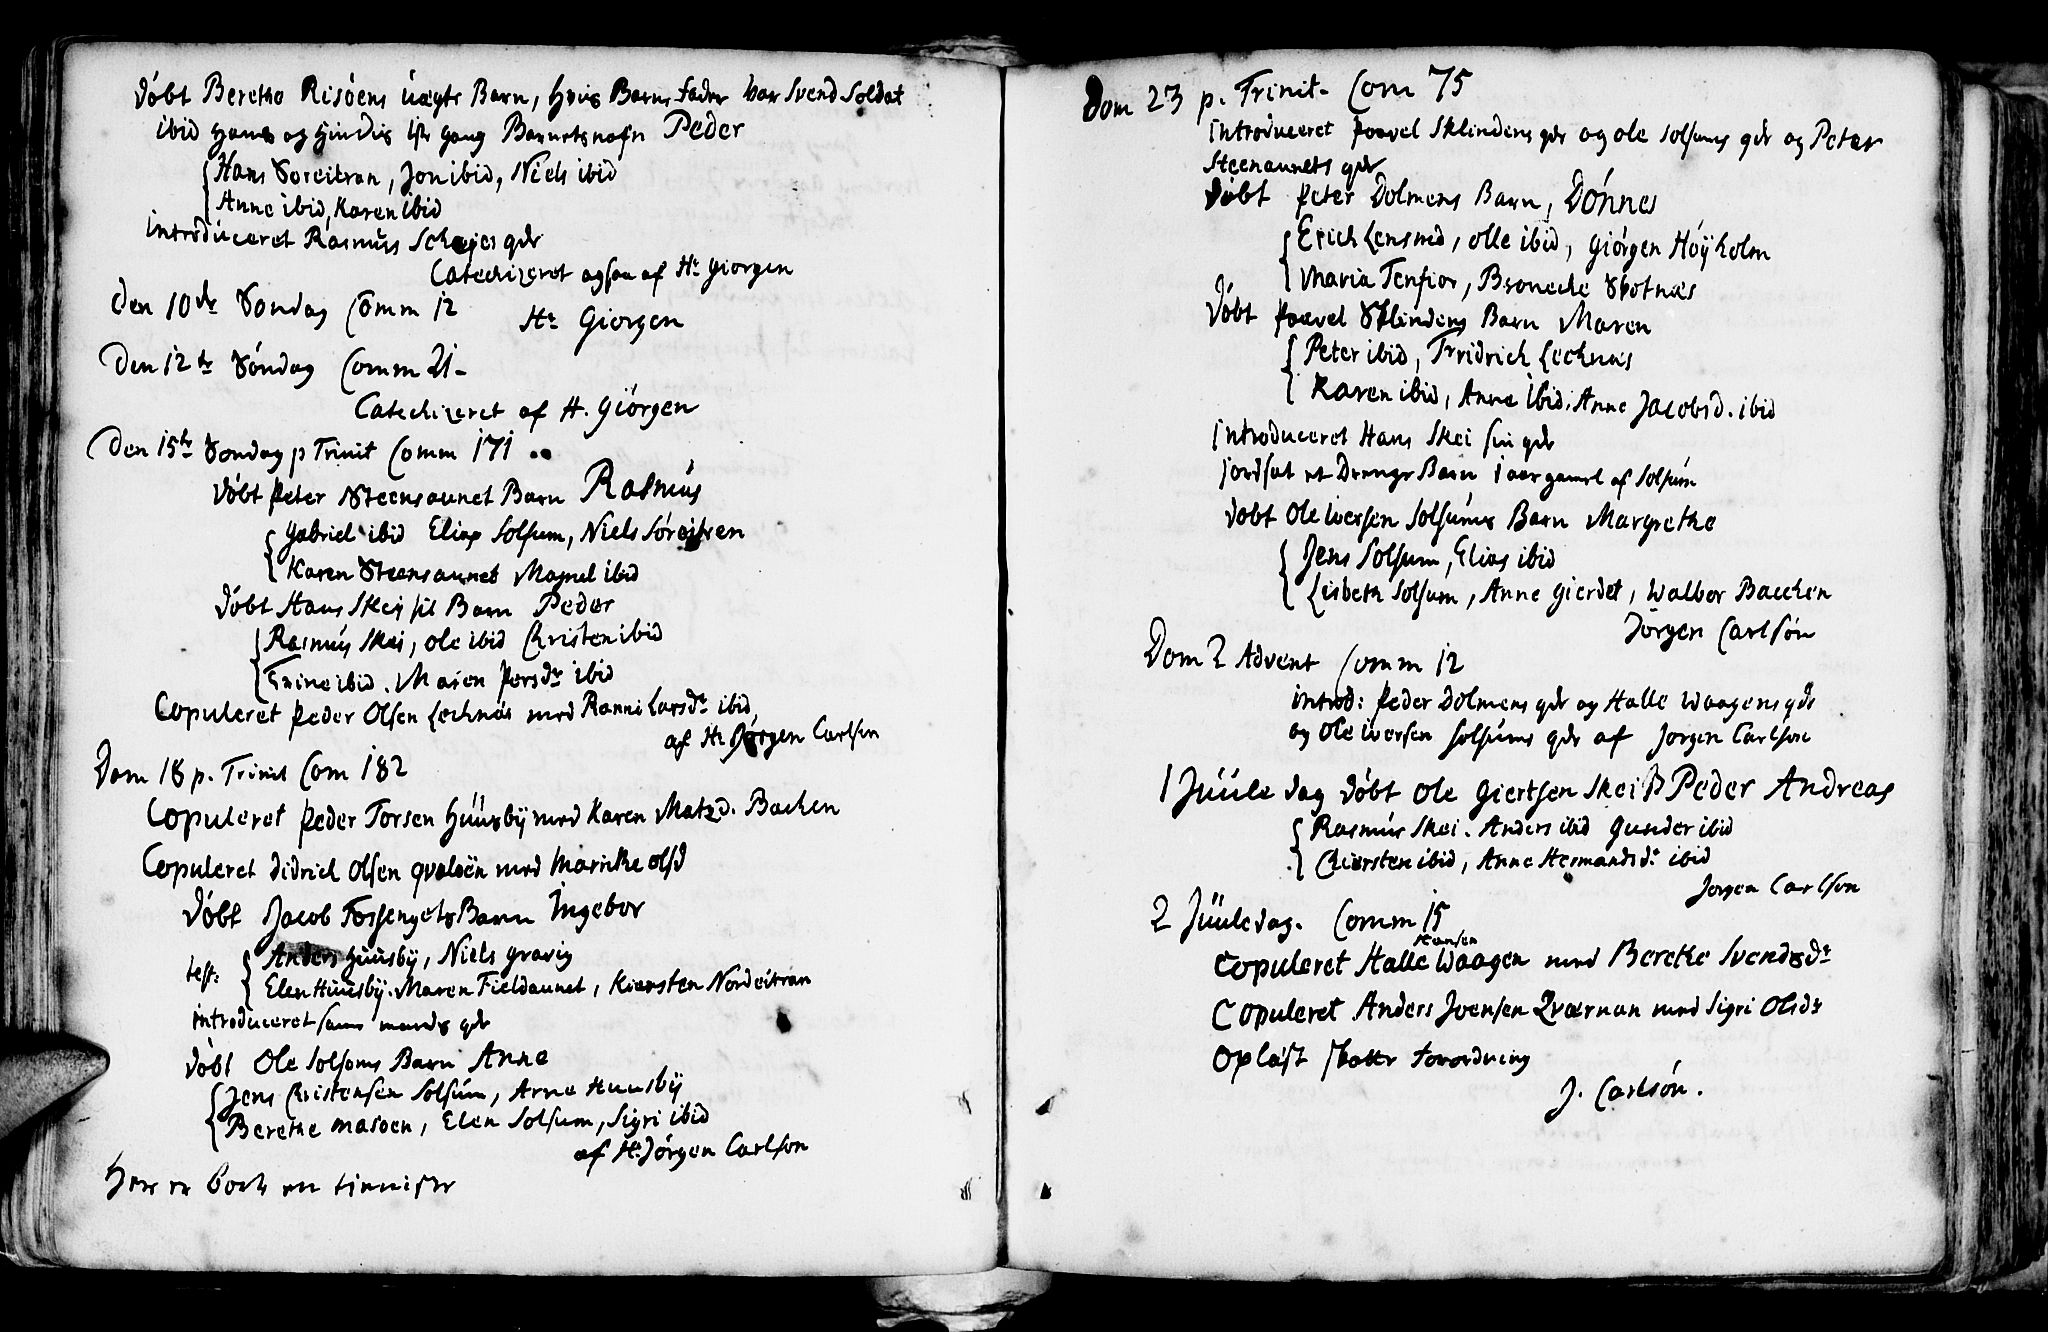 døbt Beretha Risöens uægte Barn, hvis Barns fader var Svend Soldat
ibid hans og hindis 1ste gang Barnets nafn Peder
Hans Soreitran, Jon ibid, Niels ibid
Anne ibid, Karen ibid
introduceret Rasmus Schejes qdr
Catechizeret ogsaa af Hr Giorgen
Den 10de Søndag Comm 12
Hr Giorgen
Den 12te Søndag Comm 21-
Catechizeret af H. Giörgen
Den 15te Søndag p Trinit Comm 171
døbt Peter Steensaunet Barn Rasmus
Gabriel ibid Elias Solsum, Niels Söreitren
Karen Steensaunet Magnel ibid
døbt Hans Skeis Barn Peder
Rasmus Skei, ole ibid Christen ibid
Trine ibid. Maren Persdr ibid
Copuleret Peder Olsen Lechnæs med Ranni Larsdr ibid
af Hr Jørgen Carlsen
Dom 18 p. Trinit Com 182
Copuleret Peder Torsen Huusbÿ med Karen Matzd. Bachen
Copuleret didrich Olsen qvaløen med Marichke olsd
døbt Jacob Fossengets Barn Ingebor
test: Anders Huusbÿ, Niels gravig
Elen Huusbÿ. Maren Fieldaunet, Kiersten Nordeitran
introduceret sam mands qdr
døbt Ole Solsoms Barn Anne
Jens Christensen Solsum, Arne Huusbÿ
Berethe masoen, Elen Solsum, Sigri ibid
af Hr Jørgen Carlson
Dom 23 p. Trinit- Com 75
introduceret Poavel Sklindens qdr og ole solsums qdr og Peter
Steenaunets qdr
døbt Peter Dolmens Barn, Dönnes
Erich Lensmd, olle ibid, Giörgen Höÿholm
Maria Tenfior, Bronecke Skotnæs
døbt Poavel Sklindens Barn Maren
Peter ibid, Fridrich Lechnæs
Karen ibid, Anne ibid, Anne Jacobsd. ibid
introduceret Hans Skei sin qdr
jordsat et Drenge Barn 1 aar gamel af Solsum
døbt Ole iversen Solsums Barn Margrethe
Jens Solsum, Elias ibid
Lisbeth Solsum, Anne gierdet, Walbor Bacchen
Jørgen Carlsön
Dom 2 Advent Comm 12
introd: Peder Dolmens qdr og Halle Waagens qdr
og Ole iversen Solsums qdr af Jorgen Carlson
1 Juule dag døbt Ole Giertsen Skei B Peder Andreas
Rasmus Skei. Anders ibid Gunder ibid
Chiersten ibid, Anne Hermandsdr ibid
Jorgen Carlson
2 Juuledag. Comm 15
Hansen
Copuleret Halle Waagen med Berethe Svendsdr
Copuleret Anders Joensen Qværnan med Sigri Olsdr
Oplæst skatte forordning
J. Carlsön.